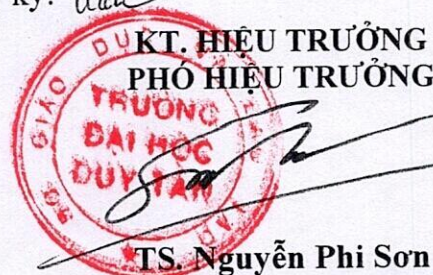 ký:
KT. HIỆU TRƯỞNG
PHÓ HIỆU TRƯỞNG
BỘ GIÁO DỤC
TRƯỜNG
ĐẠI HỌC
DUY TÂN
TS. Nguyễn Phi Sơn